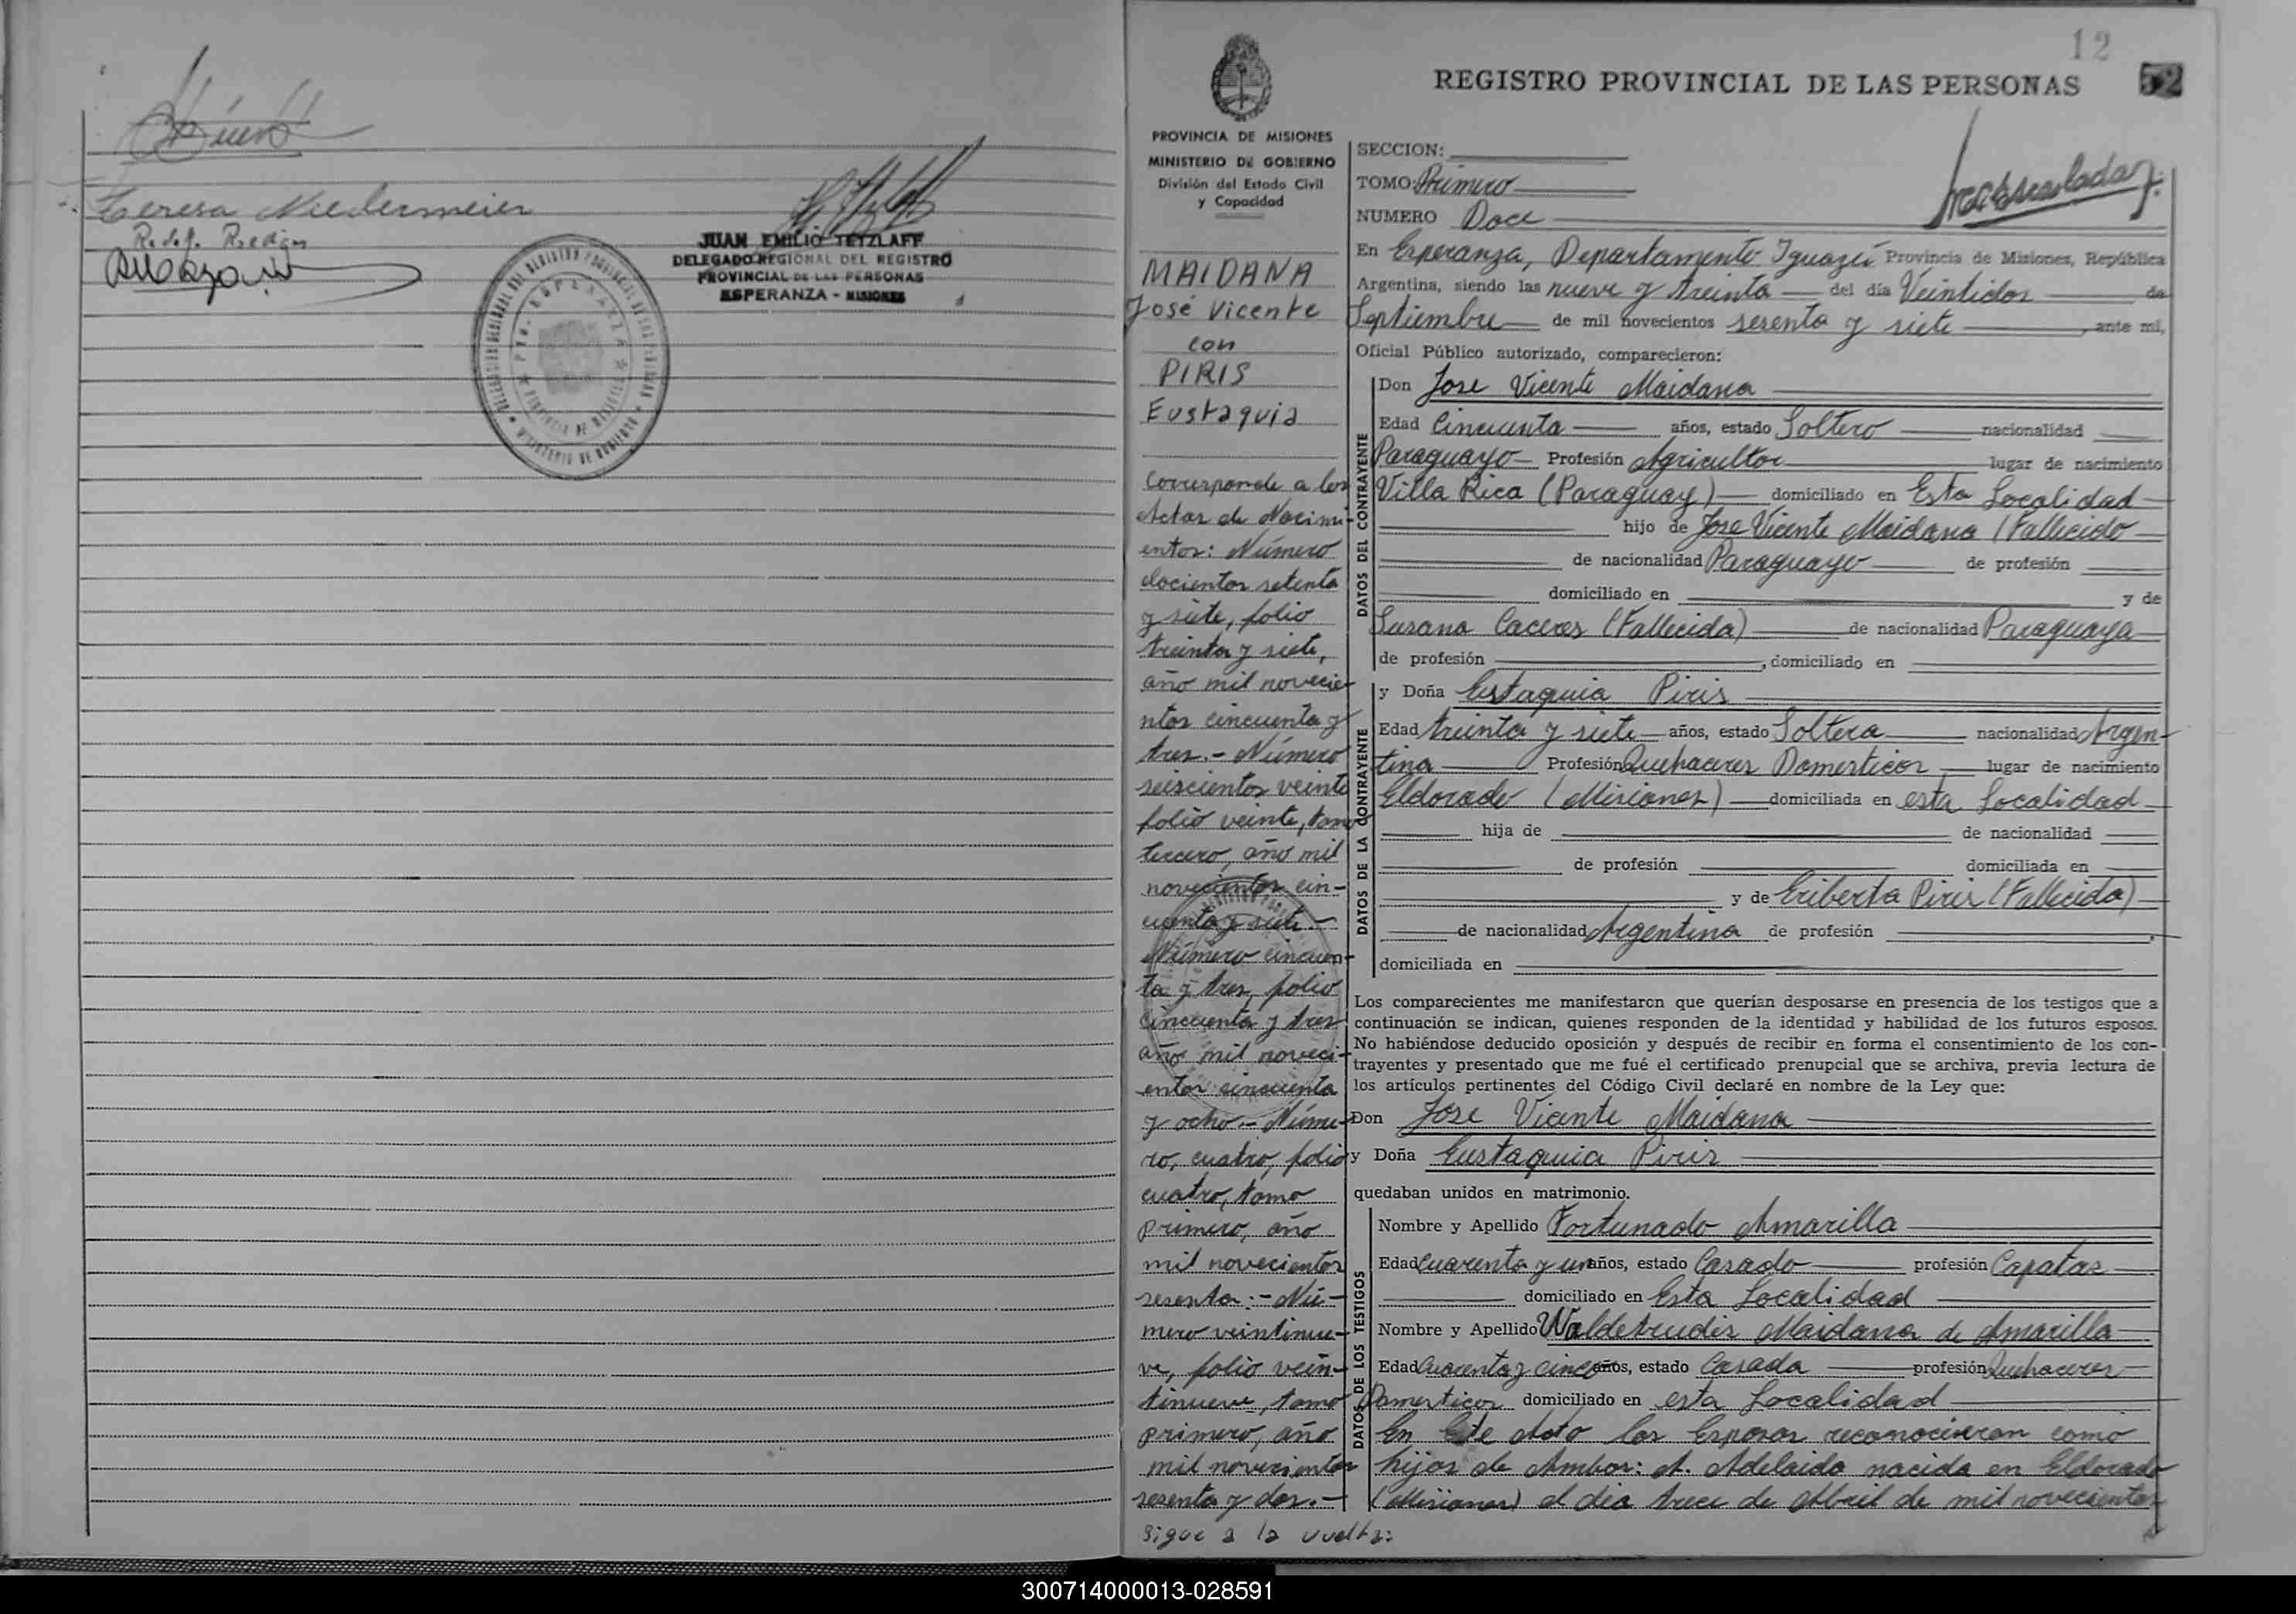 Teresa Niedermeier
JUAN EMILIO TETZLAFF
DELEGADO REGIONAL DEL REGISTRO
PROVINCIAL DE LAS PERSONAS
ESPERANZA - MISIONES
12
REGISTRO PROVINCIAL DE LAS PERSONAS
52
PROVINCIA DE MISIONES
MINISTERIO DE GOBIERNO
División del Estado Civil
y Capacidad
MAIDANA
José Vicente
con
PIRIS
Eustaquia
Corresponde a los
Actas de Nacimi-
entos: Número
docientos setenta
y siete, folio
treinta y siete,
año mil novecie-
ntos cincuenta y
tres.- Número
seiscientos veinte
folio veinte, tomo
tercero, año mil
novecientos cin-
cuenta y siete.-
Número cincuen-
ta y tres, folio
cincuenta y tres
año mil noveci-
entos cincuenta
y ocho.- Núme-
ro, cuatro, folio
cuatro, tomo
primero, año
mil novecientos
sesenta.- Nú-
mero veintinue-
ve, folio vein-
tinueve, tomo
primero, año
mil novecientos
sesenta y dos.-
Sigue a la vuelta:
SECCION:
TOMO: Primero
NUMERO Doce
En Esperanza, Departamento Iguazú Provincia de Misiones, República
Argentina, siendo las nueve y treinta del día Veintidos de
Septiembre de mil novecientos sesenta y siete, ante mí,
Oficial Público autorizado, comparecieron:
DATOS DEL CONTRAYENTE
Don Jose Vicente Maidana
Edad Cincuenta años, estado Soltero nacionalidad
Paraguayo Profesión Agricultor lugar de nacimiento
Villa Rica (Paraguay) domiciliado en Esta Localidad
hijo de Jose Vicente Maidana (Fallecido
de nacionalidad Paraguayo de profesión
domiciliado en y de
Susana Caceres (Fallecida) de nacionalidad Paraguaya
de profesión , domiciliado en
DATOS DE LA CONTRAYENTE
y Doña Eustaquia Piris
Edad treinta y siete años, estado Soltera nacionalidad Argen-
tina Profesión Quehaceres Domesticos lugar de nacimiento
Eldorado (Misiones) domiciliada en esta Localidad
hija de de nacionalidad
de profesión domiciliada en
y de Eriberta Piris (Fallecida)
de nacionalidad Argentina de profesión
domiciliada en
Los comparecientes me manifestaron que querían desposarse en presencia de los testigos que a
continuación se indican, quienes responden de la identidad y habilidad de los futuros esposos.
No habiéndose deducido oposición y después de recibir en forma el consentimiento de los con-
trayentes y presentado que me fué el certificado prenupcial que se archiva, previa lectura de
los artículos pertinentes del Código Civil declaré en nombre de la Ley que:
Don Jose Vicente Maidana
y Doña Eustaquia Piris
quedaban unidos en matrimonio.
DATOS DE LOS TESTIGOS
Nombre y Apellido Fortunado Amarilla
Edad Cuarenta y un años, estado Casado profesión Capataz
domiciliado en Esta Localidad
Nombre y Apellido Waldetrudis Maidana de Amarilla
Edad Cuarenta y cinco años, estado Casada profesión Quehaceres
Domesticos domiciliado en esta Localidad
En Este Acto los Esposos reconocieron como
hijos de Ambos: A. Adelaida nacida en Eldorado
(Misiones) el dia trece de Abril de mil novecientos
300714000013-028591